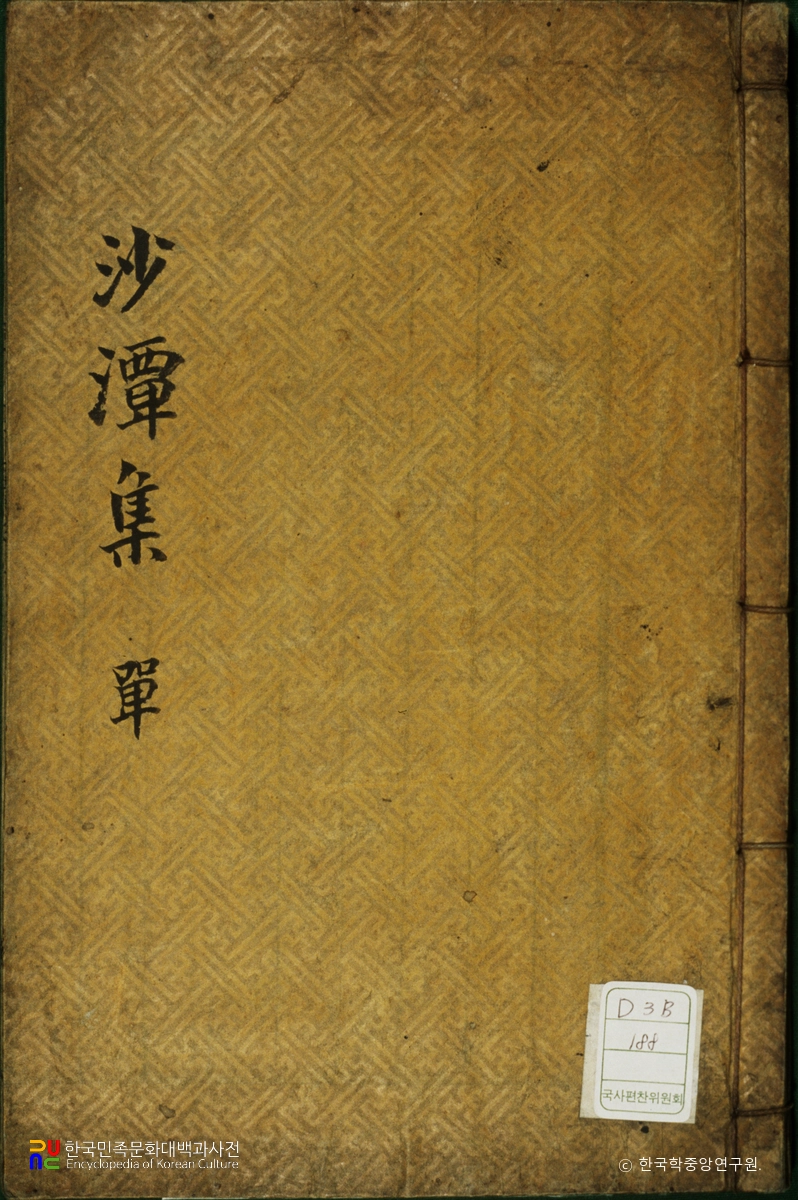 沙潭集 單
D 3 B
188
국사편찬위원회
한국민족문화대백과사전
Encyclopedia of Korean Culture
© 한국학중앙연구원.